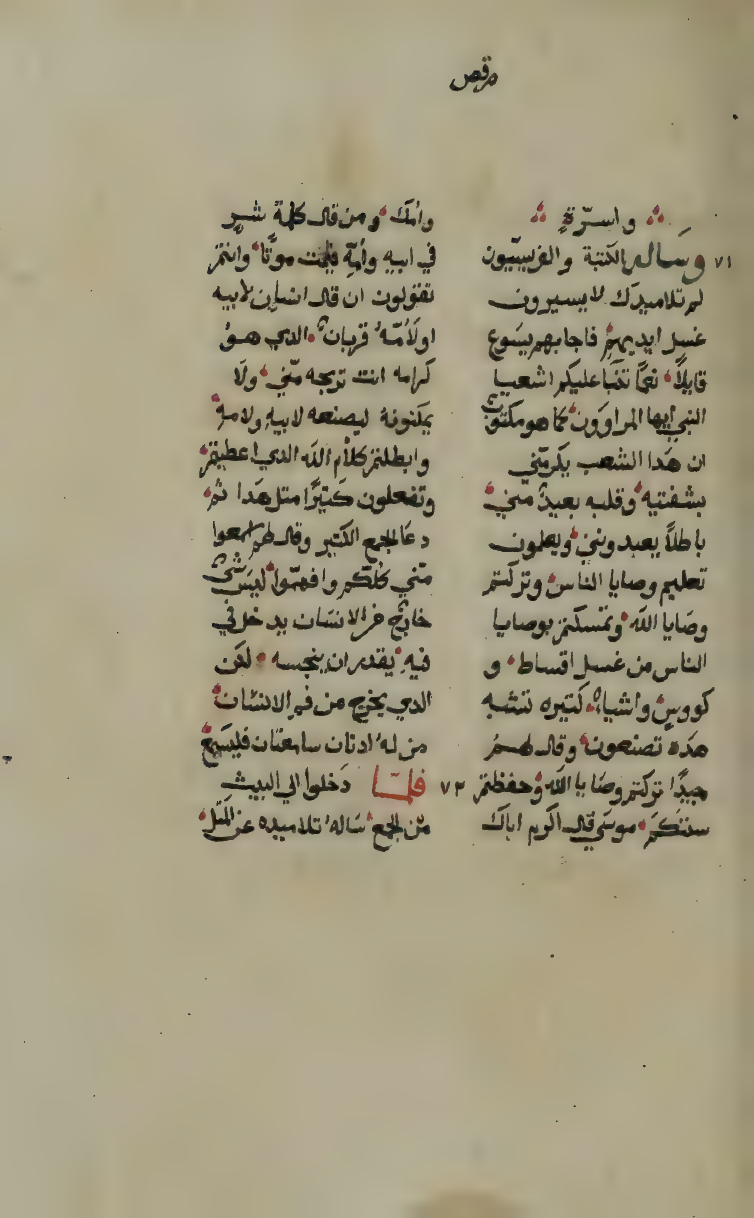 مرقص
واسرّةٍ
٧١ وساله الكتبة والفريسيّون
لم تلاميدك لا يسيرون
غسل ايديهم فاجابهم يسوع
قايلاً نعمّا تنبّا عليكم اشعيا
النبي ايها المراوون كما هو مكتوب
ان هَدا الشعب يكرمّني
بشفتيه وقلبه بعيدٌ منّي
باطلاً يعبدونني ويعلمون
تعليم وصايا الناس وتركتم
وصَايا الله وتمسكتم بوصايا
الناس من غسل اقساط و
كووسٍ واشياء كتيره تشبه
هَده تصنعون وقال لهم
جيدًا تركتم وصَايا الله وحفظتم
سنتكم موسَي قال اكرم اباك
وامّك ومن قال كلمة شر
في ابيه وامّه فليمت موتًا وانتم
تقولون ان قال انسان لابيه
اولامّه قربان الدي هو
كرامه انت تربحه منّي ولا
يمكنونهُ ليصنعه لابيه ولامه
وابطلتم كلام الله الدي اعطيتم
وتفعلون كتيرًا متل هَدا ثم
دعَا الجمع الكتير وقال لهم اسمعوا
منّي كلّكم وافهمّوا ليسَ شي
خارج عن الانسَان يدخل في
فيهِ يقدر ان ينجسه لكن
الدي يخرج من فم الانسَان
من له ادنان سامعتان فليسَمع
٧٢ فلمّا دَخلوا الي البيت
من الجمع سَالهُ تلاميده عن المتل